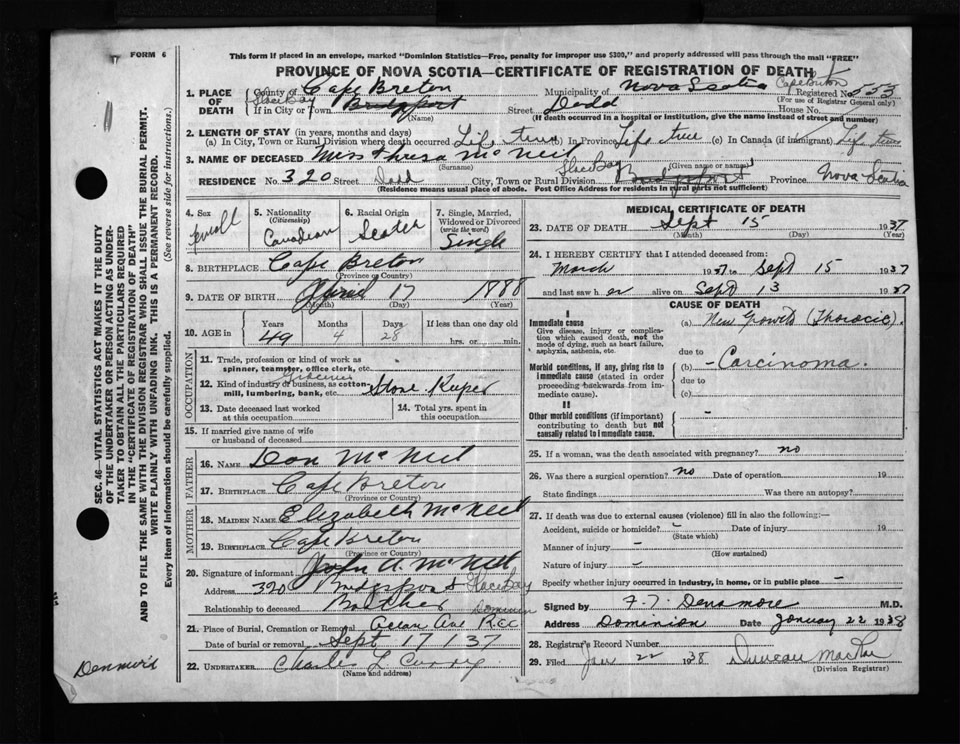 FORM 6
This form if placed in an envelope, marked "Dominion Statistics—Free, penalty for improper use $300," and properly addressed will pass through the mail "FREE"
PROVINCE OF NOVA SCOTIA—CERTIFICATE OF REGISTRATION OF DEATH
1. PLACE OF DEATH County of Cape Breton Municipality of Nova Scotia Cape Breton Registered No. 553
(For use of Registrar General only)
Glace Bay
If in City or Town Bridgeport Street Dodd House No.
(Name) (If death occurred in a hospital or Institution, give the name instead of street and number)
2. LENGTH OF STAY (in years, months and days)
(a) In City, Town or Rural Division where death occurred Life time (b) In Province Life time (c) In Canada (if immigrant) Life time
3. NAME OF DECEASED Miss Thresa McNeil
(Surname) (Given name or names)
RESIDENCE No. 320 Street Dodd City, Town or Rural Division Glace Bay Bridgeport Province Nova Scotia
(Residence means usual place of abode. Post Office Address for residents in rural parts not sufficient)
4. Sex
5. Nationality (Citizenship) Canadian
6. Racial Origin Scotch
7. Single, Married, Widowed or Divorced (write the word) Single
8. BIRTHPLACE Cape Breton
(Province or Country)
9. DATE OF BIRTH April 17 1888
(Month) (Day) (Year)
10. AGE in Years Months Days If less than one day old
49 4 28 hrs. or min.
OCCUPATION
11. Trade, profession or kind of work as spinner, teamster, office clerk, etc.
12. Kind of industry or business, as cotton mill, lumbering, bank, etc. Groceries Store Keeper
13. Date deceased last worked at this occupation
14. Total yrs. spent in this occupation
15. If married give name of wife or husband of deceased
FATHER
16. NAME Don McNeil
17. BIRTHPLACE Cape Breton
(Province or Country)
MOTHER
18. MAIDEN NAME Elizabeth McNeil
19. BIRTHPLACE Cape Breton
(Province or Country)
20. Signature of informant John A. McNeil
Address 320 Bridgeport Glace Bay
Relationship to deceased Brother Dominion
21. Place of Burial, Cremation or Removal Ocean Ave
Date of burial or removal Sept 17 / 37
22. UNDERTAKER Charles L Curry
(Name and address)
MEDICAL CERTIFICATE OF DEATH
23. DATE OF DEATH Sept 15 1937
(Month) (Day) (Year)
24. I HEREBY CERTIFY that I attended deceased from:
March 1937 to Sept 15 1937
and last saw her alive on Sept 13 1937
CAUSE OF DEATH
I
Immediate cause
Give disease, injury or complication which caused death, not the mode of dying, such as heart failure, asphyxia, asthenia, etc.
(a) New Growth (Thoracic).
due to
Morbid conditions, if any, giving rise to immediate cause (stated in order proceeding backwards from immediate cause).
(b) - Carcinoma.
due to
(c)
II
Other morbid conditions (if important) contributing to death but not causally related to immediate cause.
-
25. If a woman, was the death associated with pregnancy? no
26. Was there a surgical operation? no Date of operation 19
State findings Was there an autopsy?
27. If death was due to external causes (violence) fill in also the following:—
Accident, suicide or homicide? - Date of injury 19
(State which)
Manner of injury -
(How sustained)
Nature of injury -
Specify whether injury occurred in industry, in home, or in public place -
Signed by F. T. Densmore M.D.
Address Dominion Date January 22 1938
28. Registrar's Record Number
29. Filed Jan 22 1938 Duncan MacRae
(Division Registrar)
SEC. 46—VITAL STATISTICS ACT MAKES IT THE DUTY
OF THE UNDERTAKER OR PERSON ACTING AS UNDERTAKER
TO OBTAIN ALL THE PARTICULARS REQUIRED
IN THE "CERTIFICATE OF REGISTRATION OF DEATH"
AND TO FILE THE SAME WITH THE DIVISION REGISTRAR WHO SHALL ISSUE THE BURIAL PERMIT.
WRITE PLAINLY WITH UNFADING INK. THIS IS A PERMANENT RECORD.
Every item of information should be carefully supplied. (See reverse side for instructions.)